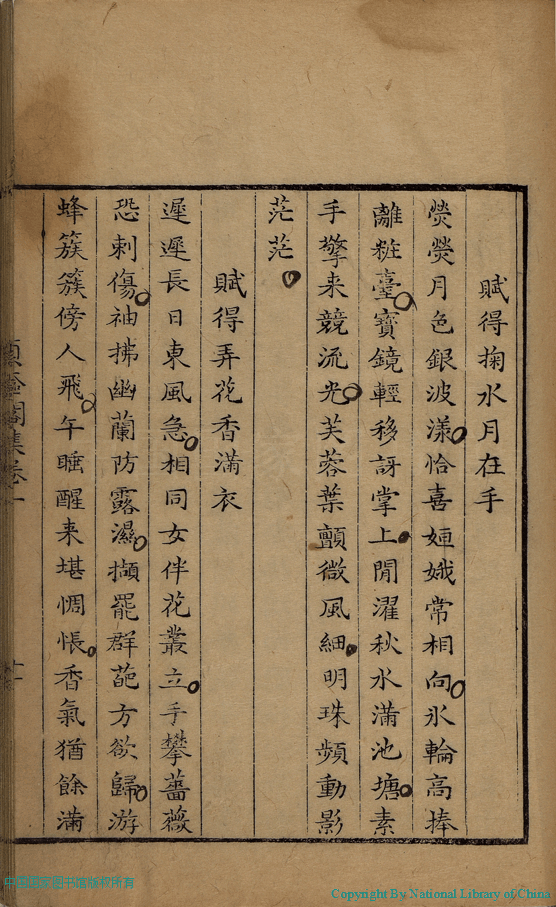 賦得掬水月在手
熒熒月色銀波漾恰喜姮娥常相向氷輪高捧
離粧臺寳鏡輕移訝掌上閒濯秋水滿池塘素
手擎来競流光芙蓉葉顫微風細明珠頻動影
茫茫
賦得弄花香滿衣
遲遲長日東風急相同女伴花叢立手攀薔薇
恐刺傷袖拂幽蘭防露濕擷罷群葩方欲歸游
蜂簇簇傍人飛午睡醒来堪惆悵香氣猶餘滿
集卷一
中国国家图书馆版权所有
Copyright By National Library of China